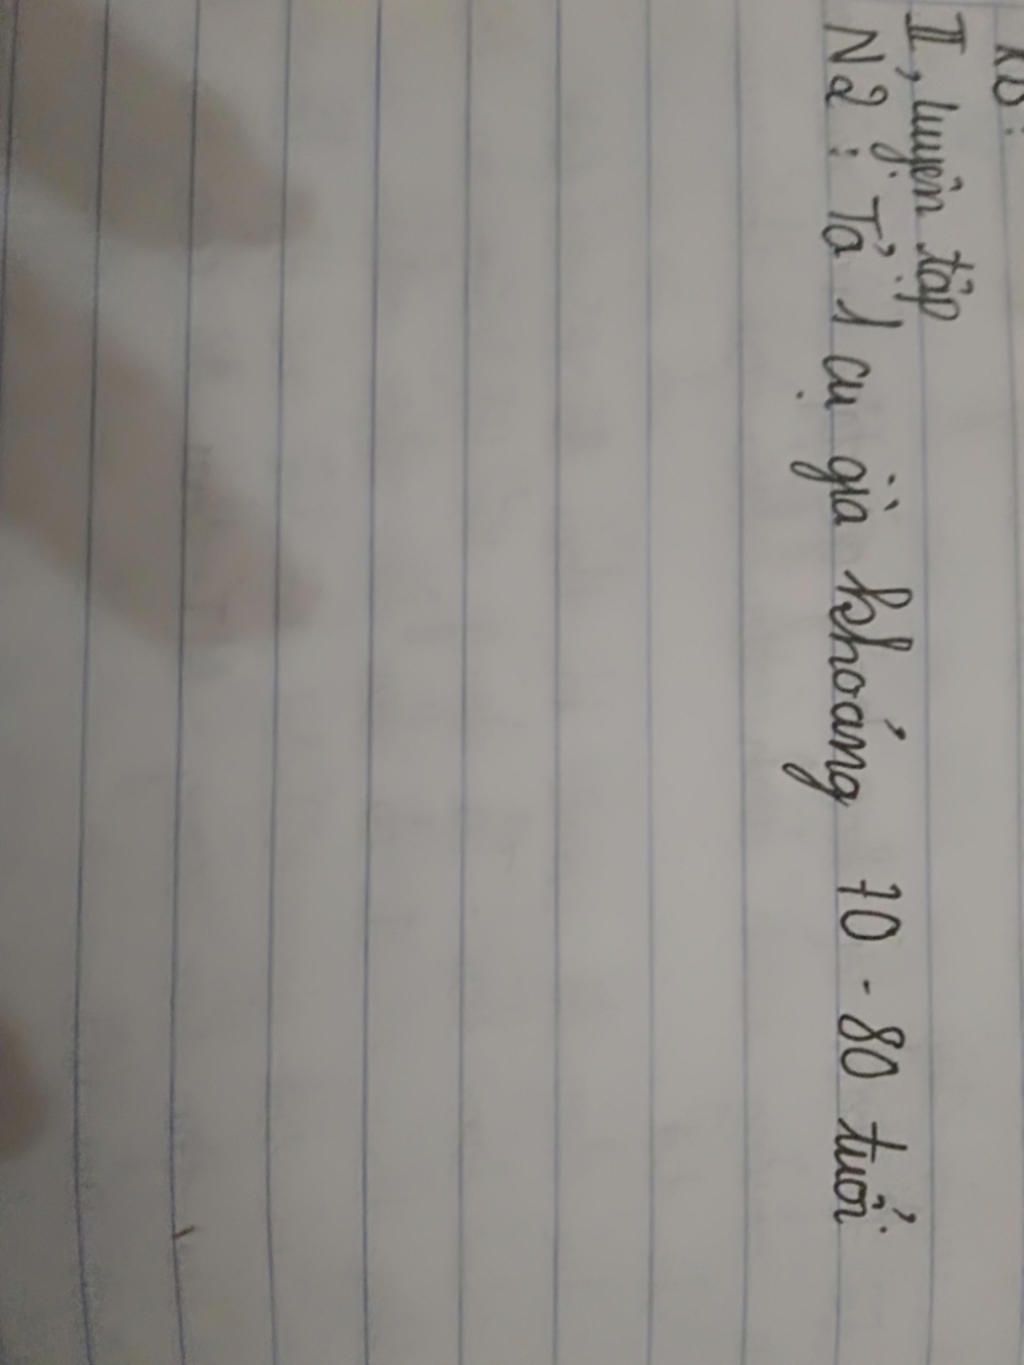 II, luyện tập
N2 : Tả 1 cụ già khoảng 70 - 80 tuổi